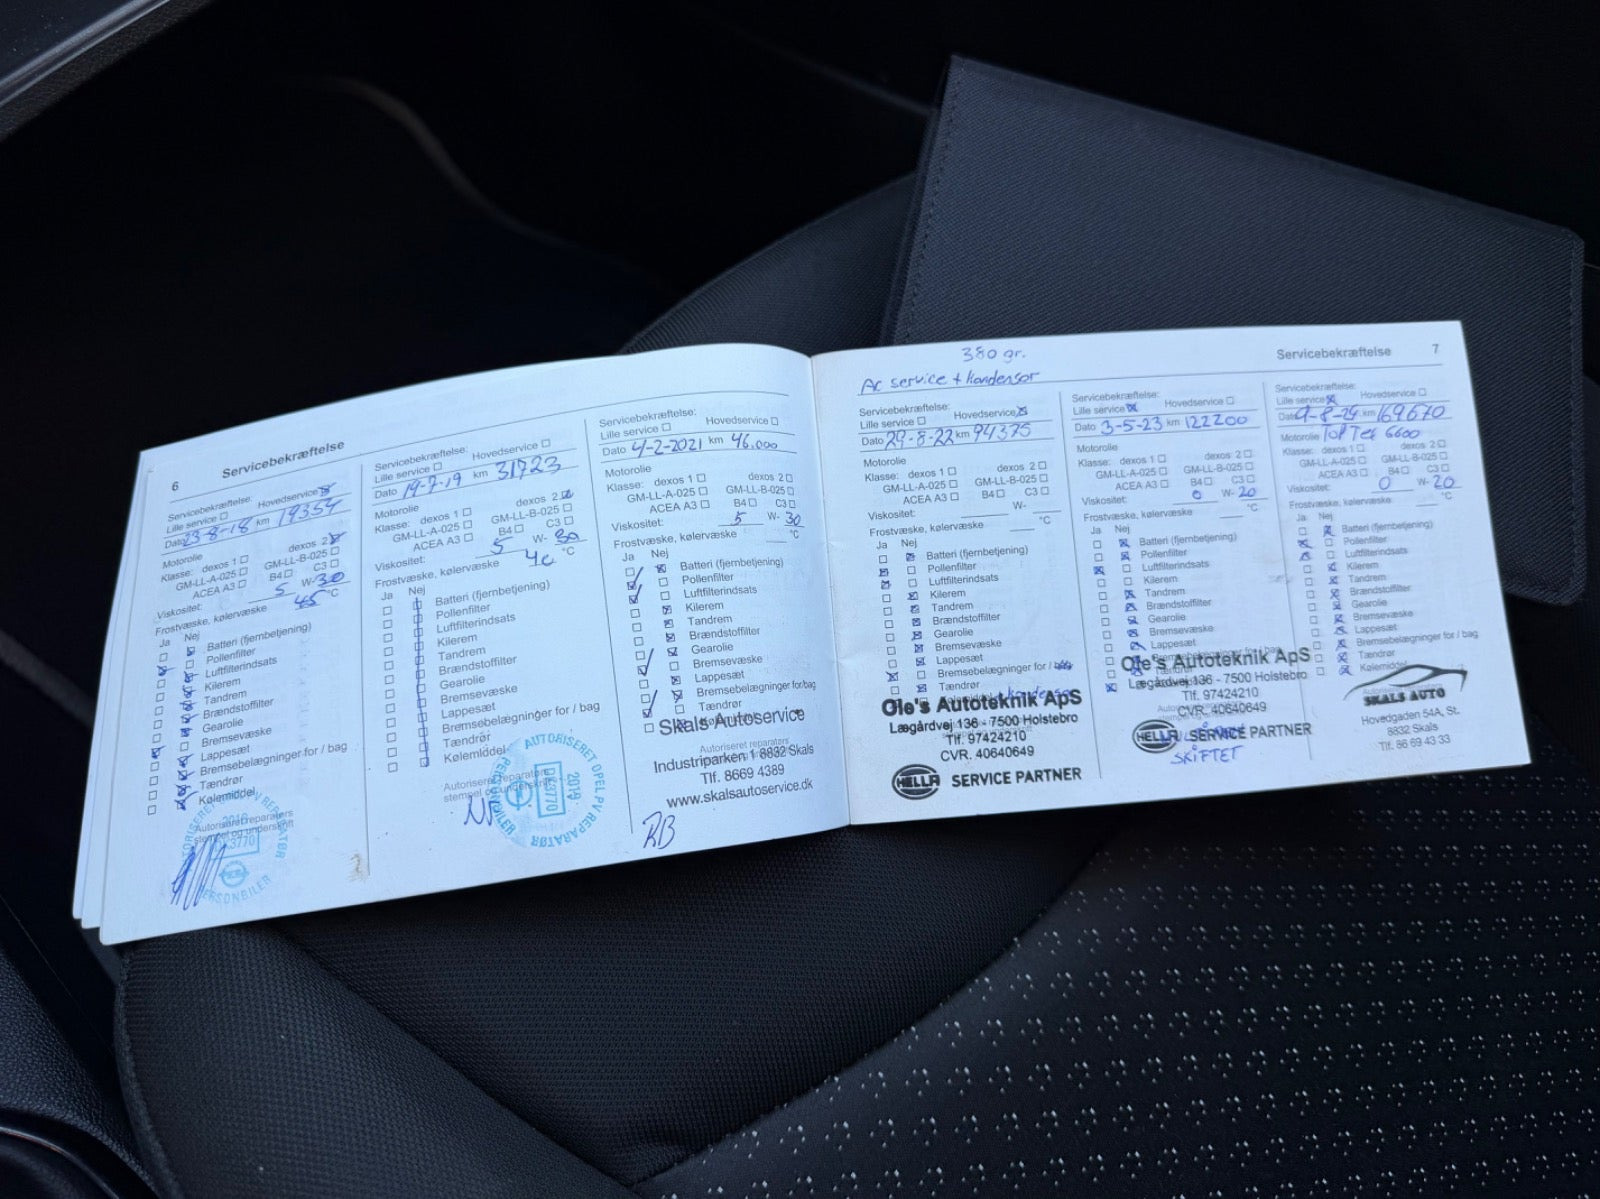 6
Servicebekræftelse
Servicebekræftelse:
Lille service Hovedservice
Dato 23-8-18 km 19354
Motorolie
Klasse: dexos 1 dexos 2
GM-LL-A-025 GM-LL-B-025
ACEA A3 B4 C3
Viskositet: 5 W-30
Frostvæske, kølervæske 45 °C
Ja Nej
Batteri (fjernbetjening)
Pollenfilter
Luftfilterindsats
Kilerem
Tandrem
Brændstoffilter
Gearolie
Bremsevæske
Lappesæt
Bremsebelægninger for / bag
Tændrør
Kølemiddel
Autoriseret reparatørs
stempel og underskrift
Servicebekræftelse:
Lille service Hovedservice
Dato 19-7-19 km 31723
Motorolie
Klasse: dexos 1 dexos 2
GM-LL-A-025 GM-LL-B-025
ACEA A3 B4 C3
Viskositet: 5 W-30
Frostvæske, kølervæske 40 °C
Ja Nej
Batteri (fjernbetjening)
Pollenfilter
Luftfilterindsats
Kilerem
Tandrem
Brændstoffilter
Gearolie
Bremsevæske
Lappesæt
Bremsebelægninger for / bag
Tændrør
Kølemiddel
Autoriseret reparatørs
AUTORISERET OPEL PV REPARATØR
2018
Servicebekræftelse:
Lille service Hovedservice
Dato 4-2-2021 km 46.000
Motorolie
Klasse: dexos 1 dexos 2
GM-LL-A-025 GM-LL-B-025
ACEA A3 B4 C3
Viskositet: 5 W-30
Frostvæske, kølervæske °C
Ja Nej
Batteri (fjernbetjening)
Pollenfilter
Luftfilterindsats
Kilerem
Tandrem
Brændstoffilter
Gearolie
Bremsevæske
Lappesæt
Bremsebelægninger for/bag
Tændrør
Skals Autoservice
Autoriseret reparatørs
Industriparken 1 8832 Skals
Tlf. 8669 4389
www.skalsautoservice.dk
RB
Servicebekræftelse 7
380 gr.
Ac service + kondensor
Servicebekræftelse:
Lille service Hovedservice
Dato 29-8-22 km 94375
Motorolie
Klasse: dexos 1 dexos 2
GM-LL-A-025 GM-LL-B-025
ACEA A3 B4 C3
Viskositet: W-
Frostvæske, kølervæske °C
Ja Nej
Batteri (fjernbetjening)
Pollenfilter
Luftfilterindsats
Kilerem
Tandrem
Brændstoffilter
Gearolie
Bremsevæske
Lappesæt
Bremsebelægninger for /
Tændrør
Ole's Autoteknik ApS
Lægårdvej 136 - 7500 Holstebro
Tlf. 97424210
CVR. 40640649
HELLA SERVICE PARTNER
Servicebekræftelse:
Lille service Hovedservice
Dato 3-5-23 km 122200
Motorolie
Klasse: dexos 1 dexos 2
GM-LL-A-025 GM-LL-B-025
ACEA A3 B4 C3
Viskositet: 0 W-20
Frostvæske, kølervæske °C
Ja Nej
Batteri (fjernbetjening)
Pollenfilter
Luftfilterindsats
Kilerem
Tandrem
Brændstoffilter
Gearolie
Bremsevæske
Lappesæt
Ole's Autoteknik ApS
Lægårdvej 136 - 7500 Holstebro
Tlf. 97424210
CVR. 40640649
HELLA SERVICE PARTNER
SKIFTET
Servicebekræftelse:
Lille service Hovedservice
Dato 9-8-24 km 169670
Motorolie TOP TEC 6600
Klasse: dexos 1 dexos 2
GM-LL-A-025 GM-LL-B-025
ACEA A3 B4 C3
Viskositet: 0 W-20
Frostvæske, kølervæske °C
Ja Nej
Batteri (fjernbetjening)
Pollenfilter
Luftfilterindsats
Kilerem
Tandrem
Brændstoffilter
Gearolie
Bremsevæske
Lappesæt
Bremsebelægninger for / bag
Tændrør
Kølemiddel
SKALS AUTO
Hovedgaden 54A, St.
8832 Skals
Tlf. 86 69 43 33